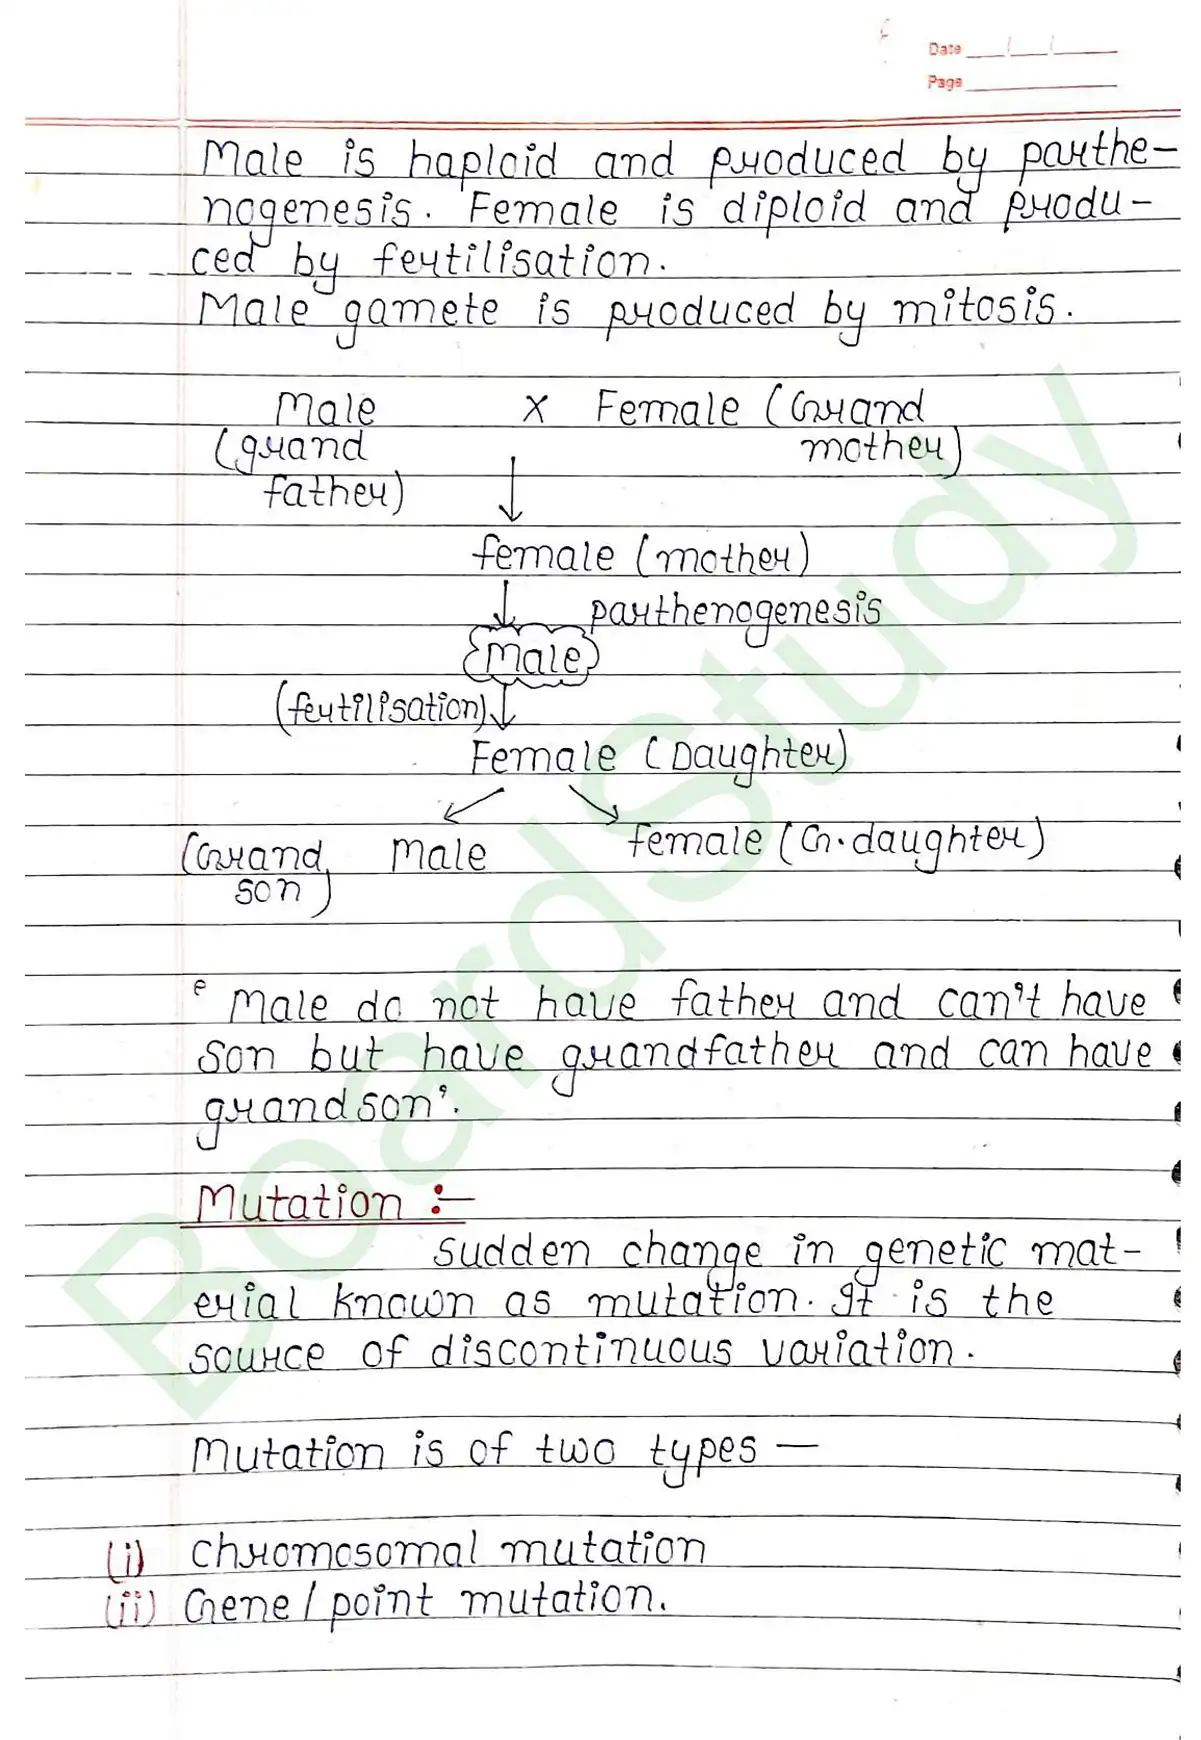 Date
Page
Male is haploid and produced by parthe-
nogenesis. Female is diploid and produ-
ced by fertilisation.
Male gamete is produced by mitosis.
Male x Female (Grand
(grand mother)
father)
female (mother)
parthenogenesis
Male
(fertilisation)
Female (Daughter)
(Grand Male female (G.daughter)
son)
Male do not have father and can't have
son but have grandfather and can have
grandson'.
Mutation :-
Sudden change in genetic mat-
erial known as mutation. It is the
source of discontinuous variation.
Mutation is of two types —
(i) chromosomal mutation
(ii) Gene/point mutation.
BoardStudy